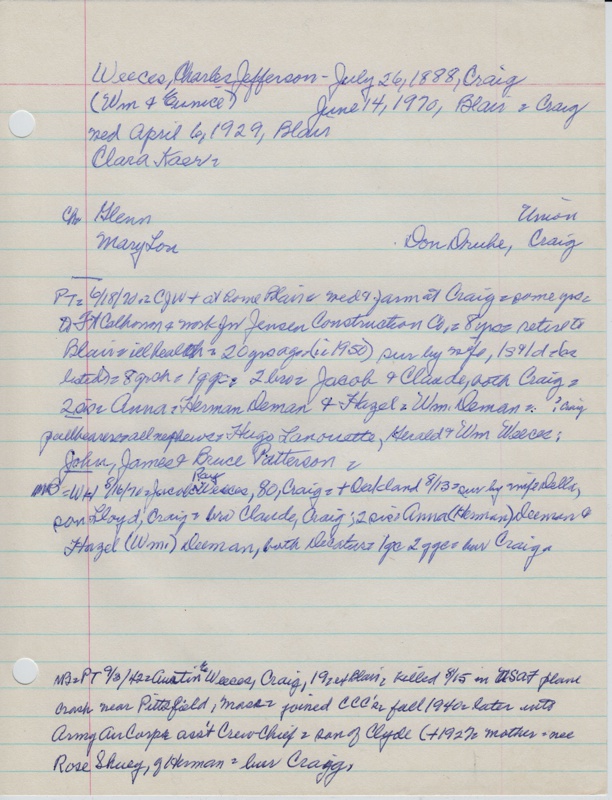 Weeces, Charles Jefferson - July 26, 1888, Craig
(Wm & Eunice) June 14, 1970, Blair = Craig
wed April 6, 1929, Blair
Clara Kaer =
Ch Glenn Union
Mary Lou Don Druhe, Craig
PT= 6/18/70 = CJW + at home Blair = wed & farm at Craig = some yrs =
to Ft Calhoun & work for Jensen Construction Co, = 8 yrs = retire to
Blair = ill health = 20 yrs ago (i.e 1950) sur by wife, 1s & 1d = (as
listed) = 8 grch = 1 ggc = 2 bro = Jacob & Claude, both Craig =
2 sis = Anna = Herman Deman & Hazel = Wm Deman = Craig
pallbearers = all nephews = Hugo Lanouette, Herald & Wm Weeces;
John, James & Bruce Patterson =
NB = WH 8/16/70 = Jacob Ray Weeces, 80, Craig = + Oakland 8/13 = sur by wife Della,
son Lloyd, Craig = bro Claude, Craig; 2 sis = Anna (Herman) Deeman &
Hazel (Wm) Deeman, both Decatur = 1 gc 2 ggc = bur Craig.
NB = PT 9/3/42 = Austin E Weeces, Craig, 19 = ex Blair = killed 8/15 in USAF plane
crash near Pittsfield, Mass = joined CCC's = fall 1940 = later into
Army Air Corps = ass't Crew Chief = son of Clyde (+1927 = mother = nee
Rose Shuey, of Herman = bur Craig,